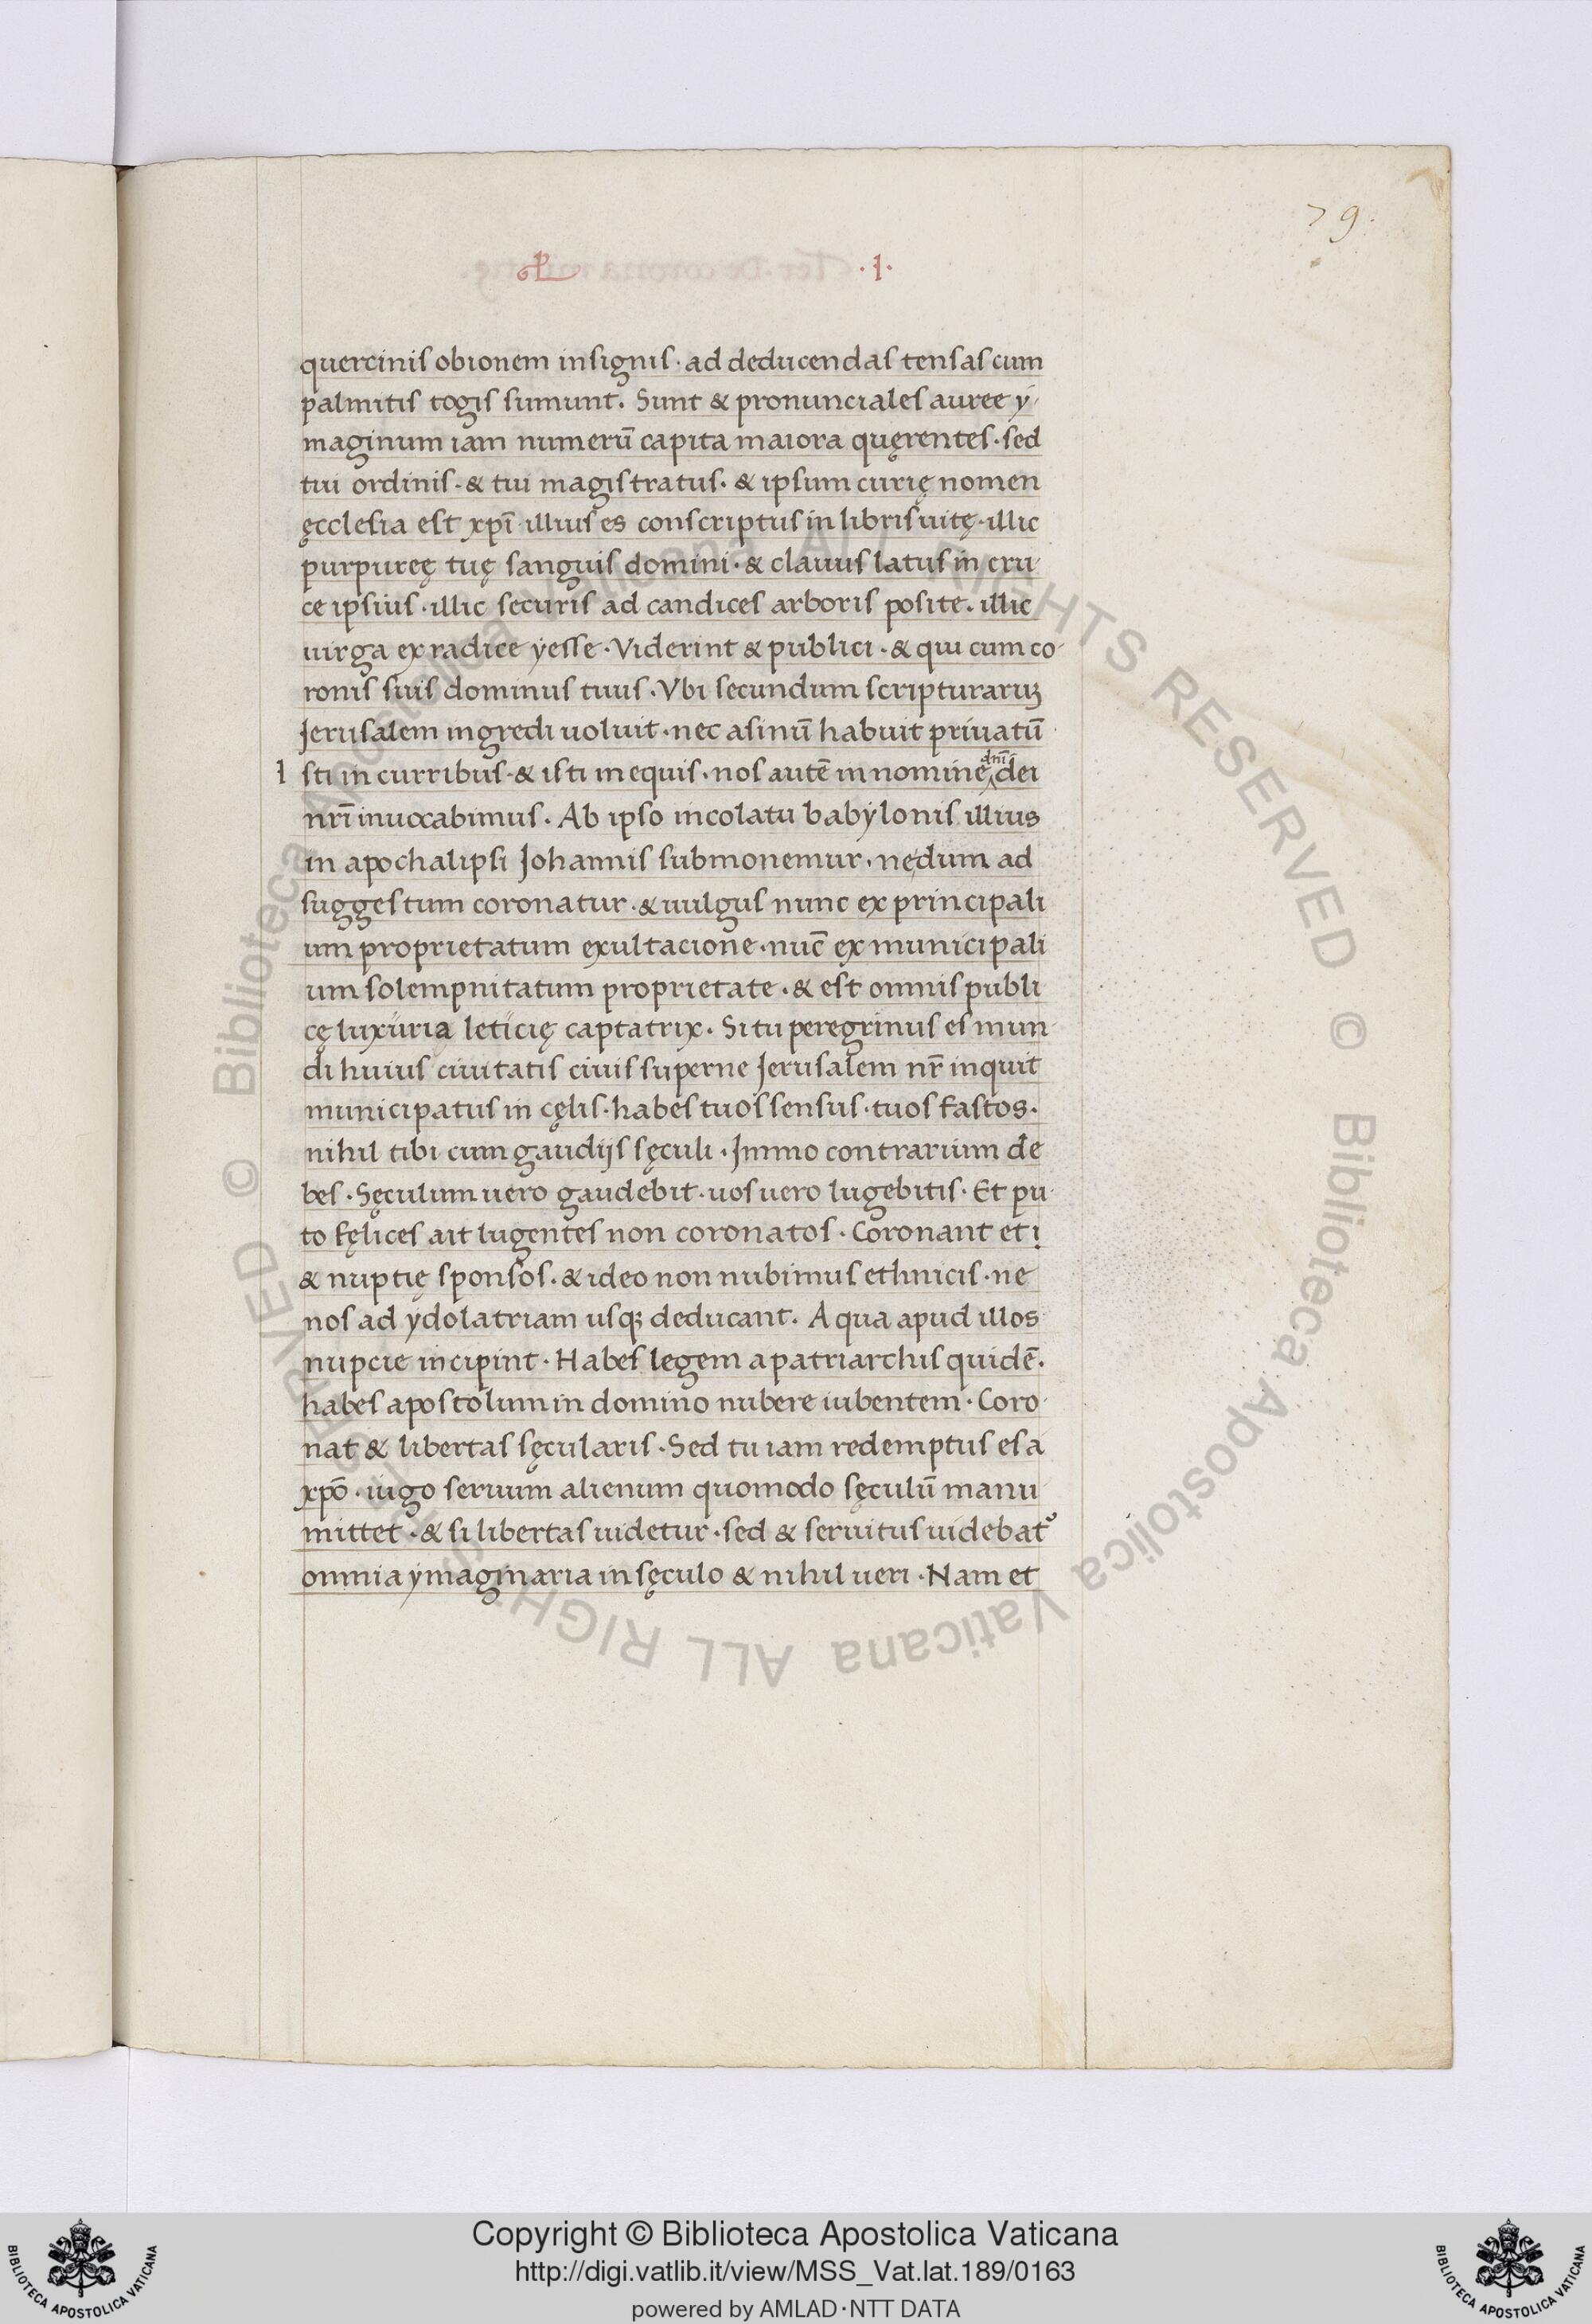 79.
L .I.
quercinis obionem insignis· ad deducendas tensas cum
palmitis togis sumunt. Sunt & pronunciales auree y
maginum iam numerū capita maiora quęrentes· sed
tui ordinis· & tui magistratus· & ipsum curię nomen
ęcclesia est xpī illius es conscriptus in libris uitę· illic
purpureę tuę sanguis domini· & clauus latus in cru
ce ipsius· illic securis ad candices arboris posite. illic
uirga ex radice yesse· Viderint & publici· & qui cum co
ronis suis dominus tuus· Vbi secundum scripturaruꝫ
Jerusalem ingredi uoluit· nec asinū habuit priuatū
Isti in curribus· & isti in equis· nos autē in nomine dn̄i dei
nr̄i inuocabimus. Ab ipso incolatu babylonis illius
in apochalipsi Johannis submonemur· nędum ad
suggestum coronatur· & uulgus nunc ex principali
um proprietatum exultacione· nūc ex municipali
um solempnitatum proprietate· & est omnis publi
cę luxuria leticię captatrix. Si tu peregrinus es mun
di huius ciuitatis ciuis superne Jerusalem nr̄ inquit
municipatus in cęlis· habes tuos sensus· tuos fastos.
nihil tibi cum gaudijs sęculi· Immo contrarium de
bes· Sęculum uero gaudebit· uos uero lugebitis· Et pu
to fęlices ait lugentes non coronatos· Coronant et i
& nuptię sponsos· & ideo non nubimus ethnicis· ne
nos ad ydolatriam usqꝫ deducant. A qua apud illos
nupcie incipint· Habes legem a patriarchis quidē.
habes apostolum in domino nubere iubentem· Coro
nat & libertas sęcularis· Sed tu iam redemptus es a
xpō· iugo seruum alienum quomodo sęculū manu
mittet· & si libertas uidetur· sed & seruitus uidebat᷑
omnia ymaginaria in sęculo & nihil ueri· Nam et
Copyright © Biblioteca Apostolica Vaticana
http://digi.vatlib.it/view/MSS_Vat.lat.189/0163
powered by AMLAD·NTT DATA
BIBLIOTECA APOSTOLICA VATICANA
BIBLIOTECA APOSTOLICA VATICANA
© Biblioteca Apostolica Vaticana ALL RIGHTS RESERVED © Biblioteca Apostolica Vaticana ALL RIGHTS RESERVED